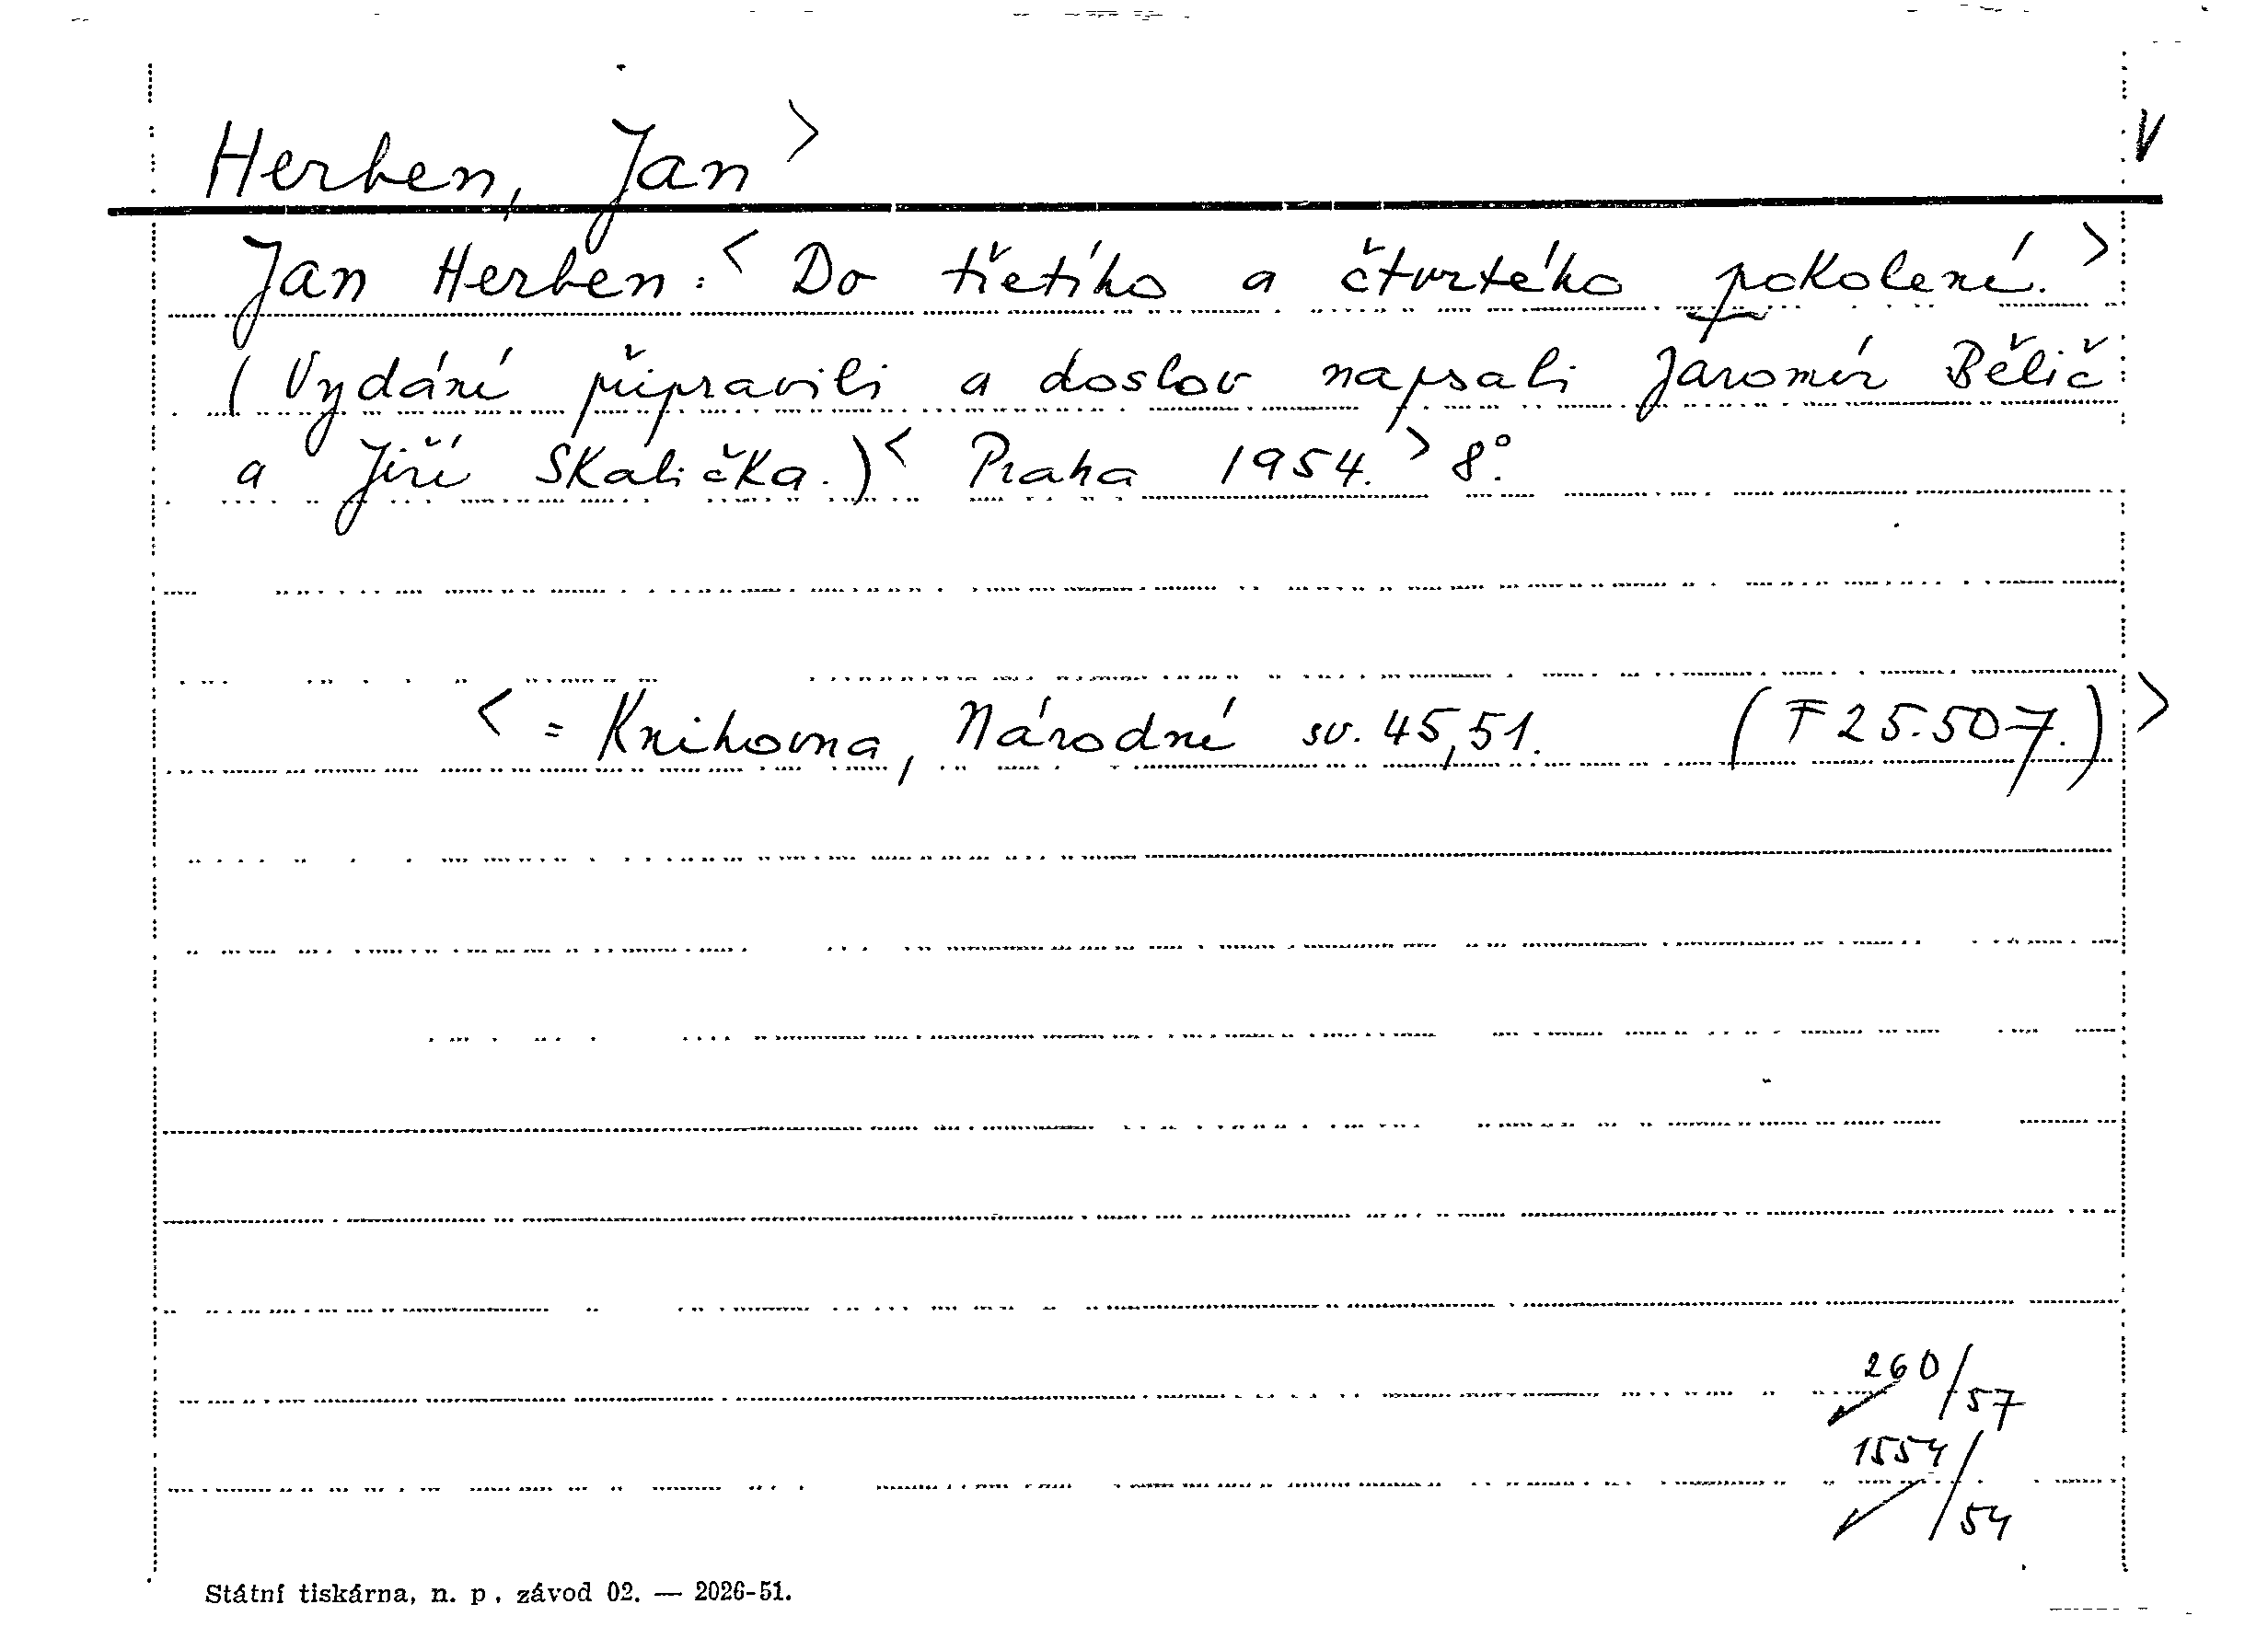 Herben, Jan > V
Jan Herben: < Do třetího a čtvrtého pokolení. >
(Vydání připravili a doslov napsali Jaromír Bělič
a Jiří Skalička.) < Praha 1954. > 8°.
< = Knihovna, Národní sv. 45,51. (F 25.507.) >
260/57
1554/54
Státní tiskárna, n. p. závod 02. — 2026-51.